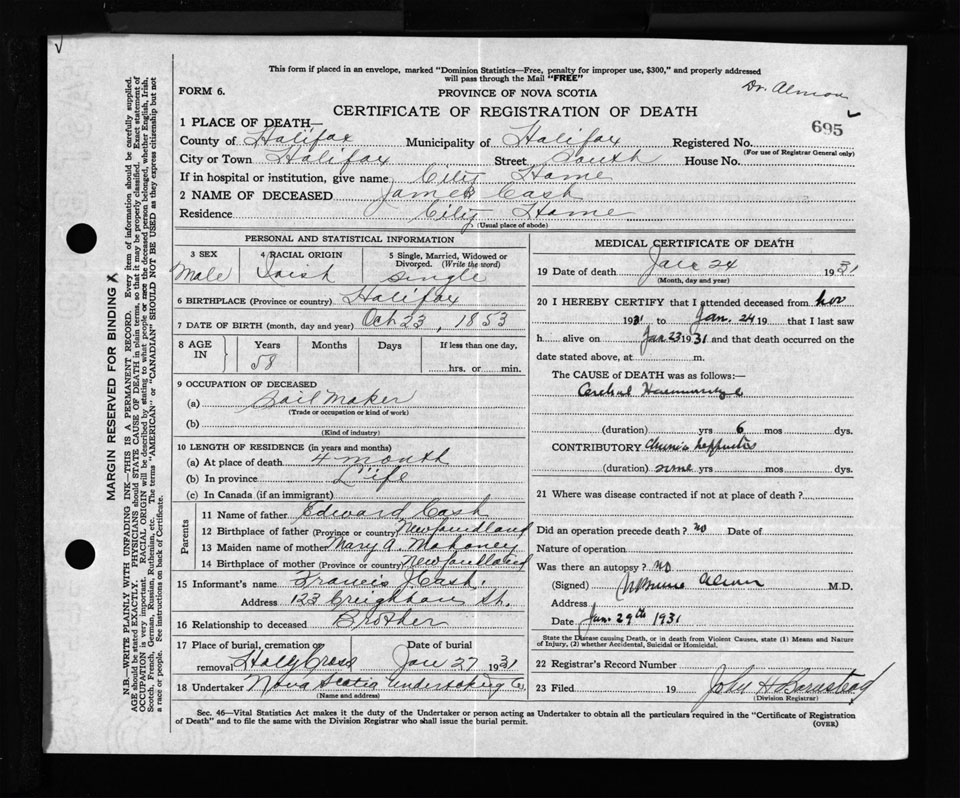 This form if placed in an envelope, marked "Dominion Statistics—Free, penalty for improper use, $300," and properly addressed
will pass through the Mail "FREE"
FORM 6.
PROVINCE OF NOVA SCOTIA
Dr. Almon
CERTIFICATE OF REGISTRATION OF DEATH
695
1 PLACE OF DEATH—
County of Halifax Municipality of Halifax Registered No.
(For use of Registrar General only)
City or Town Halifax Street South House No.
If in hospital or institution, give name City Home
2 NAME OF DECEASED James Cash
Residence City Home
(Usual place of abode)
PERSONAL AND STATISTICAL INFORMATION
3 SEX 4 RACIAL ORIGIN 5 Single, Married, Widowed or Divorced. (Write the word)
Male Irish Single
6 BIRTHPLACE (Province or country) Halifax
7 DATE OF BIRTH (month, day and year) Oct 23, 1853
8 AGE IN Years Months Days If less than one day.
58 hrs. or min.
9 OCCUPATION OF DECEASED
(a) Sail Maker
(Trade or occupation or kind of work)
(b)
(Kind of industry)
10 LENGTH OF RESIDENCE (in years and months)
(a) At place of death 4 month
(b) In province Life
(c) In Canada (if an immigrant)
Parents
11 Name of father Edward Cash
12 Birthplace of father (Province or country) Newfoundland
13 Maiden name of mother Mary A. Mahoney
14 Birthplace of mother (Province or country) Newfoundland
15 Informant's name Francis J Cash.
Address 123 Creighton St.
16 Relationship to deceased Brother
17 Place of burial, cremation or removal Date of burial
Holy Cross Jan 27 1931
18 Undertaker Nova Scotia Undertaking Co
(Name and address)
MEDICAL CERTIFICATE OF DEATH
19 Date of death Jan 24 1931
(Month, day and year)
20 I HEREBY CERTIFY that I attended deceased from Nov
19 to Jan. 24 19 that I last saw
h alive on Jan 23 1931 and that death occurred on the
date stated above, at m.
The CAUSE of DEATH was as follows:
Cerebral Haemorrhage
(duration) yrs 6 mos dys.
CONTRIBUTORY Chronic
(duration) yrs mos dys.
21 Where was disease contracted if not at place of death?
Did an operation precede death? no Date of
Nature of operation
Was there an autopsy? no
(Signed) Almon M.D.
Address
Date Jan. 29th 1931
State the Disease causing Death, or in death from Violent Causes, state (1) Means and Nature
of Injury, (2) whether Accidental, Suicidal or Homicidal.
22 Registrar's Record Number
23 Filed 19 John H
(Division Registrar)
Sec. 46—Vital Statistics Act makes it the duty of the Undertaker or person acting as Undertaker to obtain all the particulars required in the "Certificate of Registration
of Death" and to file the same with the Division Registrar who shall issue the burial permit.
(OVER)
MARGIN RESERVED FOR BINDING
N.B.—WRITE PLAINLY WITH UNFADING INK—THIS IS A PERMANENT RECORD. Every item of information should be carefully supplied.
AGE should be stated EXACTLY. PHYSICIANS should STATE CAUSE OF DEATH in plain terms, so that it may be properly classified. Exact statement of
OCCUPATION is very important. RACIAL ORIGIN will be described by stating to what people or race the deceased person belonged, whether English, Irish,
Scotch, French, German, Russian, Ruthenian, etc. The terms "AMERICAN" or "CANADIAN" SHOULD NOT BE USED as they express citizenship but not
a race or people. See instructions on back of Certificate.